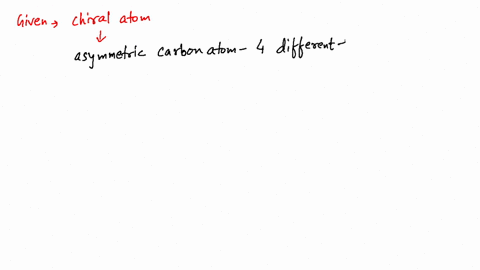 Given → chiral atom
↓
asymmetric carbon atom - 4 different -